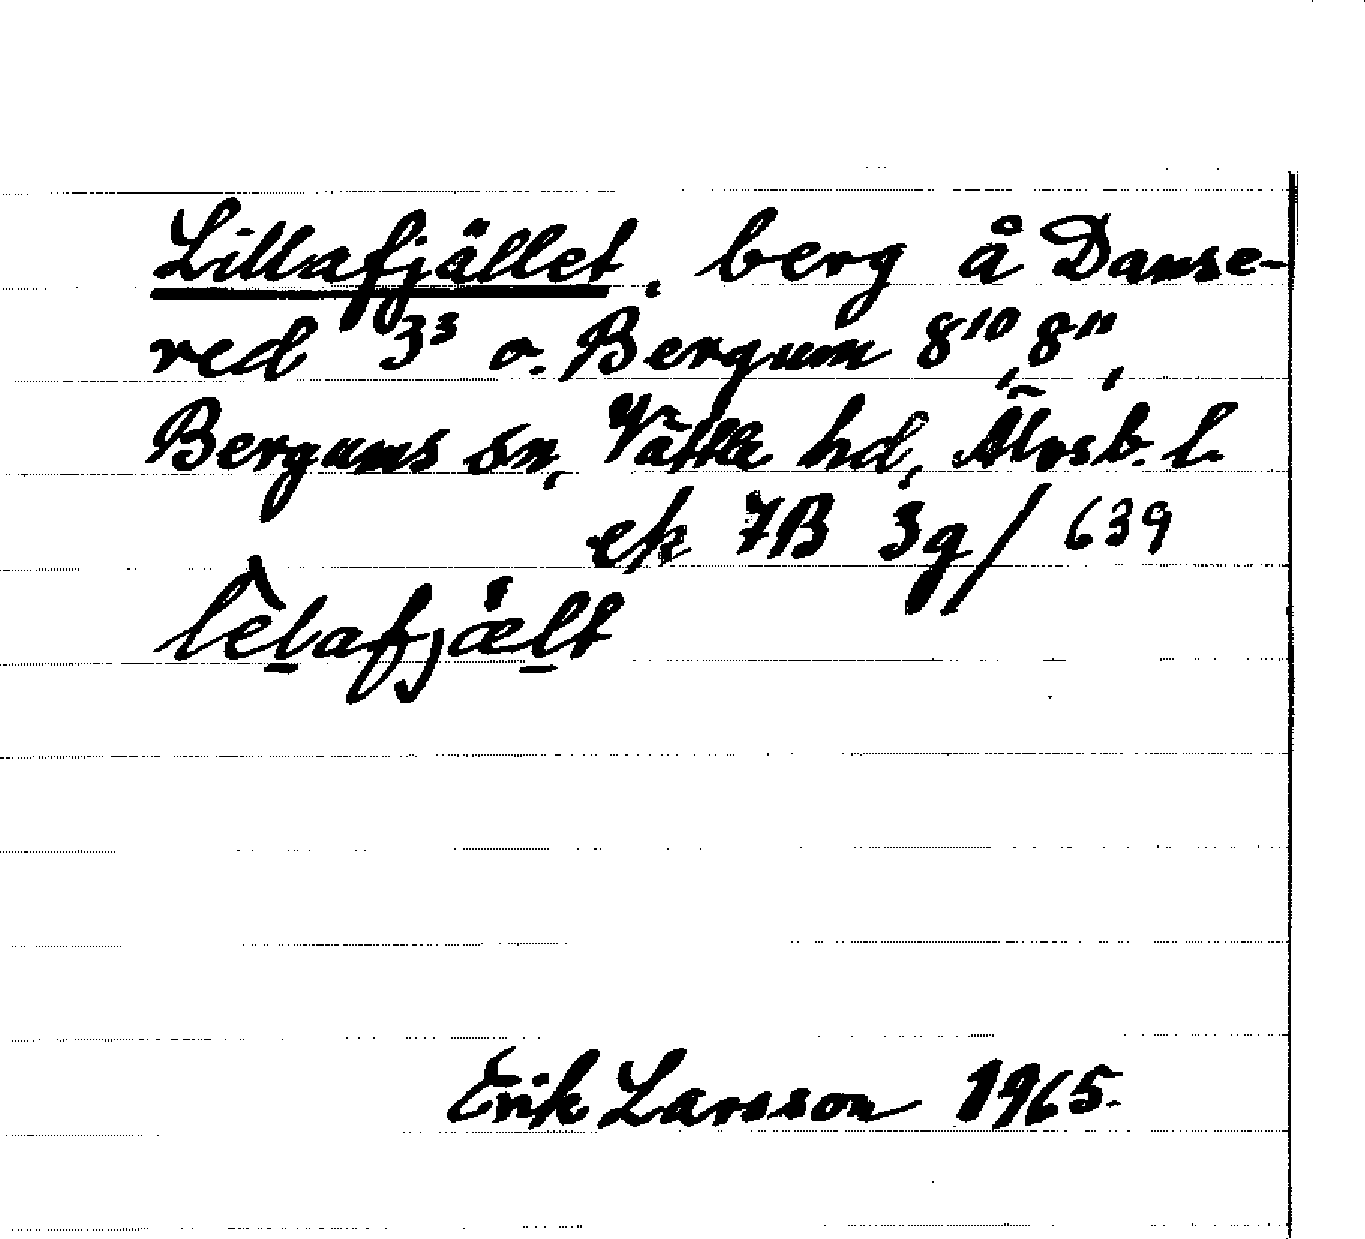 Lillafjället, berg å Danse-
red 3³ o. Bergum 8¹⁰, 8¹¹,
Bergums sn, Vättle hd, Älvsb. l.
ek 7B 3g/639
lèl̠afjæl̠t
Erik Larsson 1965.